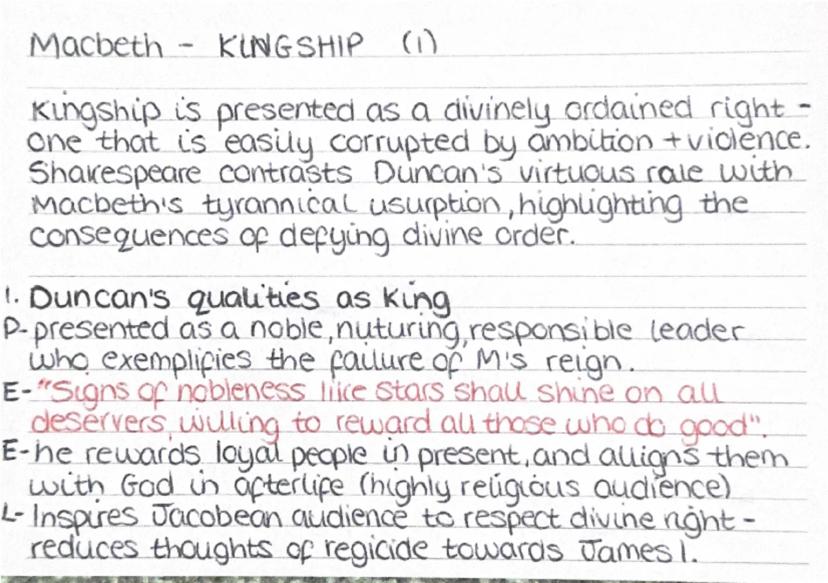 Macbeth - KINGSHIP (1)
Kingship is presented as a divinely ordained right -
one that is easily corrupted by ambition + violence.
Shakespeare contrasts Duncan's virtuous role with
Macbeth's tyrannical usurption, highlighting the
consequences of defying divine order.
1. Duncan's qualities as King
P- presented as a noble, nuturing, responsible leader
who exemplifies the failure of M's reign.
E- "Signs of nobleness like stars shall shine on all
deservers, willing to reward all those who do good".
E- he rewards loyal people in present, and alligns them
with God in afterlife (highly religious audience)
L- Inspires Jacobean audience to respect divine right -
reduces thoughts of regicide towards James I.